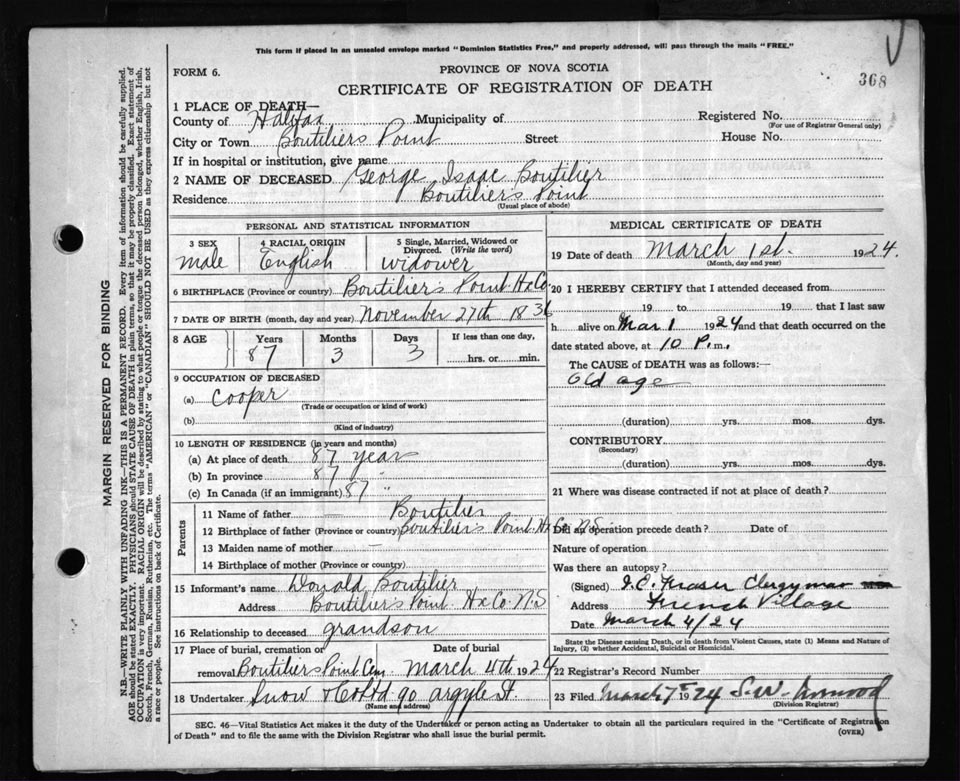 This form if placed in an unsealed envelope marked "Dominion Statistics Free," and properly addressed, will pass through the mails "FREE."
368
FORM 6.
PROVINCE OF NOVA SCOTIA
CERTIFICATE OF REGISTRATION OF DEATH
1 PLACE OF DEATH—
County of Halifax Municipality of Registered No.
(For use of Registrar General only)
City or Town Boutiliers Point Street House No.
If in hospital or institution, give name
2 NAME OF DECEASED George Isaac Boutilier
Residence Boutilier's Point
(Usual place of abode)
PERSONAL AND STATISTICAL INFORMATION
3 SEX
male
4 RACIAL ORIGIN
English
5 Single, Married, Widowed or Divorced. (Write the word)
widower
6 BIRTHPLACE (Province or country) Boutilier's Point Hx Co.
7 DATE OF BIRTH (month, day and year) November 27th 1836
8 AGE Years Months Days If less than one day,
87 3 3 hrs. or min.
9 OCCUPATION OF DECEASED
(a) Cooper
(Trade or occupation or kind of work)
(b)
(Kind of industry)
10 LENGTH OF RESIDENCE (in years and months)
(a) At place of death 87 years
(b) In province 87 "
(c) In Canada (if an immigrant) 87 "
Parents
11 Name of father — Boutilier
12 Birthplace of father (Province or country) Boutiliers Point Hx Co. N.S.
13 Maiden name of mother —
14 Birthplace of mother (Province or country)
15 Informant's name Donald Boutilier
Address Boutiliers Point Hx Co. N.S
16 Relationship to deceased grandson
17 Place of burial, cremation or removal Boutiliers Point Cem. Date of burial March 4th 1924
18 Undertaker Snow & Co Ltd 90 argyle St.
(Name and address)
MEDICAL CERTIFICATE OF DEATH
19 Date of death March 1st. 1924.
(Month, day and year)
20 I HEREBY CERTIFY that I attended deceased from
19 to 19 that I last saw
h alive on Mar 1 1924 and that death occurred on
date stated above, at 10 P.m.
The CAUSE OF DEATH was as follows:—
Old age
(duration) yrs. mos. dys.
CONTRIBUTORY
(Secondary)
(duration) yrs. mos. dys.
21 Where was disease contracted if not at place of death?
Did an operation precede death? Date of
Nature of operation
Was there an autopsy?
(Signed) Fraser Clergyman
Address French Village
Date March 4/24
State the Disease causing Death, or in death from Violent Causes, state (1) Means and Nature of Injury, (2) whether Accidental, Suicidal or Homicidal.
22 Registrar's Record Number
23 Filed March 7th 1924 S.W.
(Division Registrar)
SEC. 46—Vital Statistics Act makes it the duty of the Undertaker or person acting as Undertaker to obtain all the particulars required in the "Certificate of Registration of Death" and to file the same with the Division Registrar who shall issue the burial permit.
(OVER)
MARGIN RESERVED FOR BINDING
N.B.—WRITE PLAINLY WITH UNFADING INK—THIS IS A PERMANENT RECORD. Every item of information should be carefully supplied.
AGE should be stated EXACTLY. PHYSICIANS should STATE CAUSE OF DEATH in plain terms, so that it may be properly classified. Exact statement of
OCCUPATION is very important. RACIAL ORIGIN will be described by stating to what people or tongue the deceased person belonged, whether English, Irish,
Scotch, French, German, Russian, Ruthenian, etc. The terms "AMERICAN" or "CANADIAN" SHOULD NOT BE USED as they express citizenship but not
a race or people. See instructions on back of Certificate.